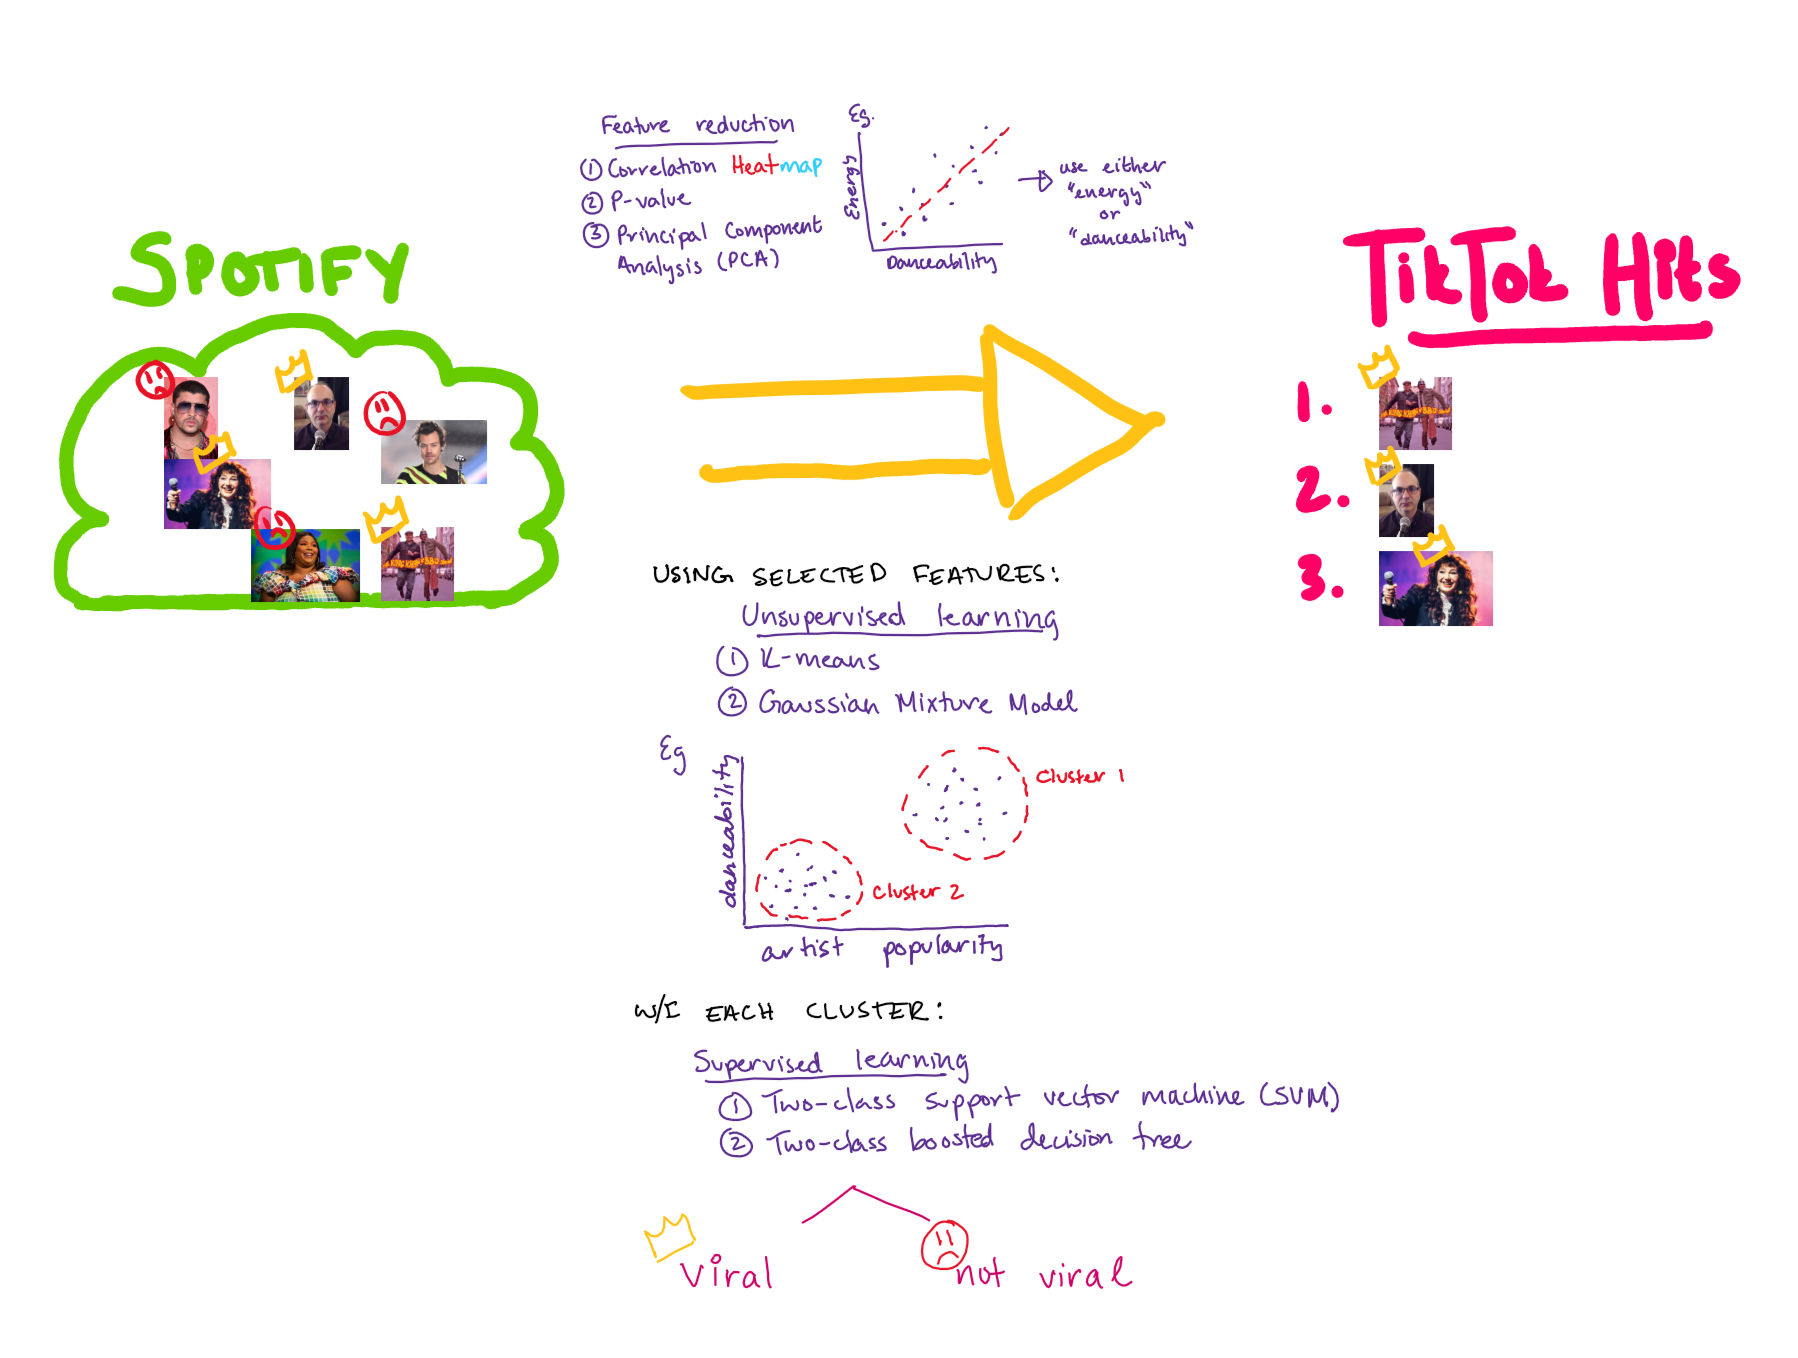 SPOTIFY
Feature reduction
① Correlation Heatmap
② P-value
③ Principal Component
Analysis (PCA)
Eg.
Energy
Danceability
use either
"energy"
or
"danceability"
TikTok Hits
1.
2.
3.
USING SELECTED FEATURES:
Unsupervised learning
① K-means
② Gaussian Mixture Model
Eg
danceability
artist popularity
Cluster 1
Cluster 2
W/I EACH CLUSTER:
Supervised learning
① Two-class support vector machine (SVM)
② Two-class boosted decision tree
viral
not viral